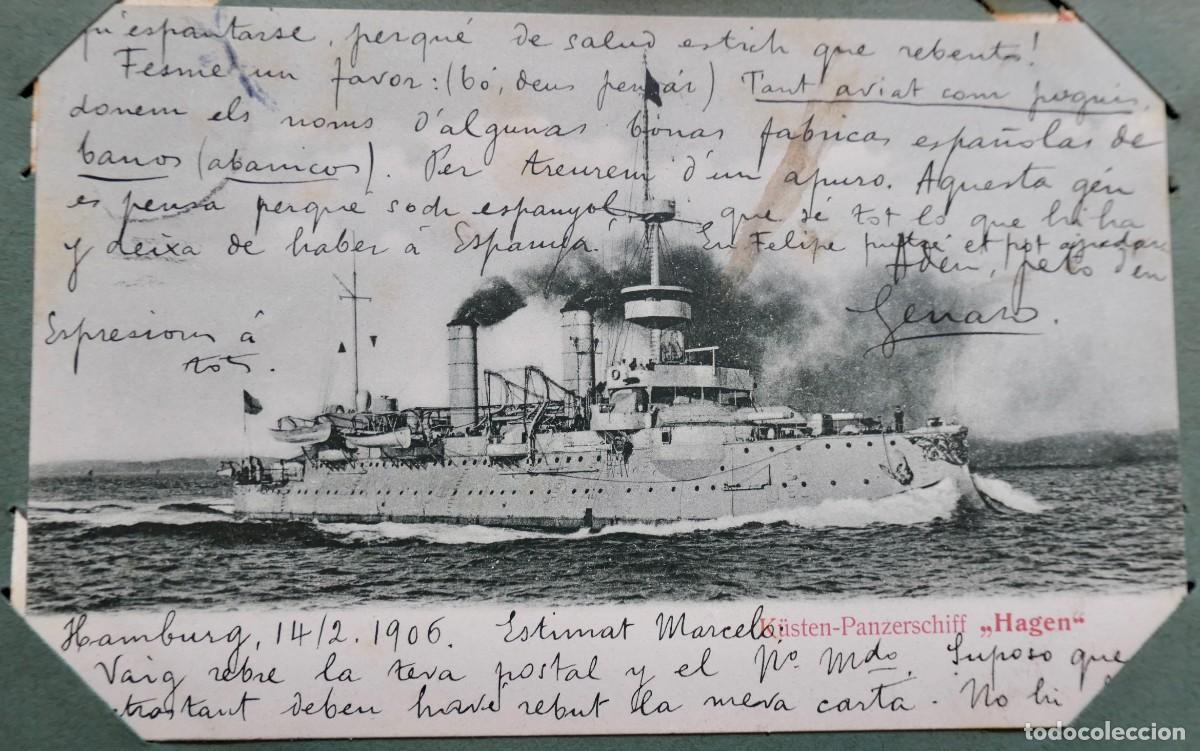 qu'espantarse, perqué de salud estich que rebento!
Fesme un favor: (bó, deus pensar) Tant aviat com poguis,
donem els noms d'algunas bonas fabricas españolas de
banos (abanicos). Per treurem d'un apuro. Aquesta gen
es pensa perque soch espanyol que sé tot lo que hi ha
y deixa de haber á Espanya! En Felipe potsé et pot ajudar
Adeu, petó d'en
Genaro.
Espresions á
tots.
Küsten-Panzerschiff „Hagen“
Hamburg, 14/2. 1906. Estimat Marcelo:
Vaig rebre la teva postal y el Nº Mdo. Suposo que
tant deben havé rebut la meva carta. No hi
todocoleccion